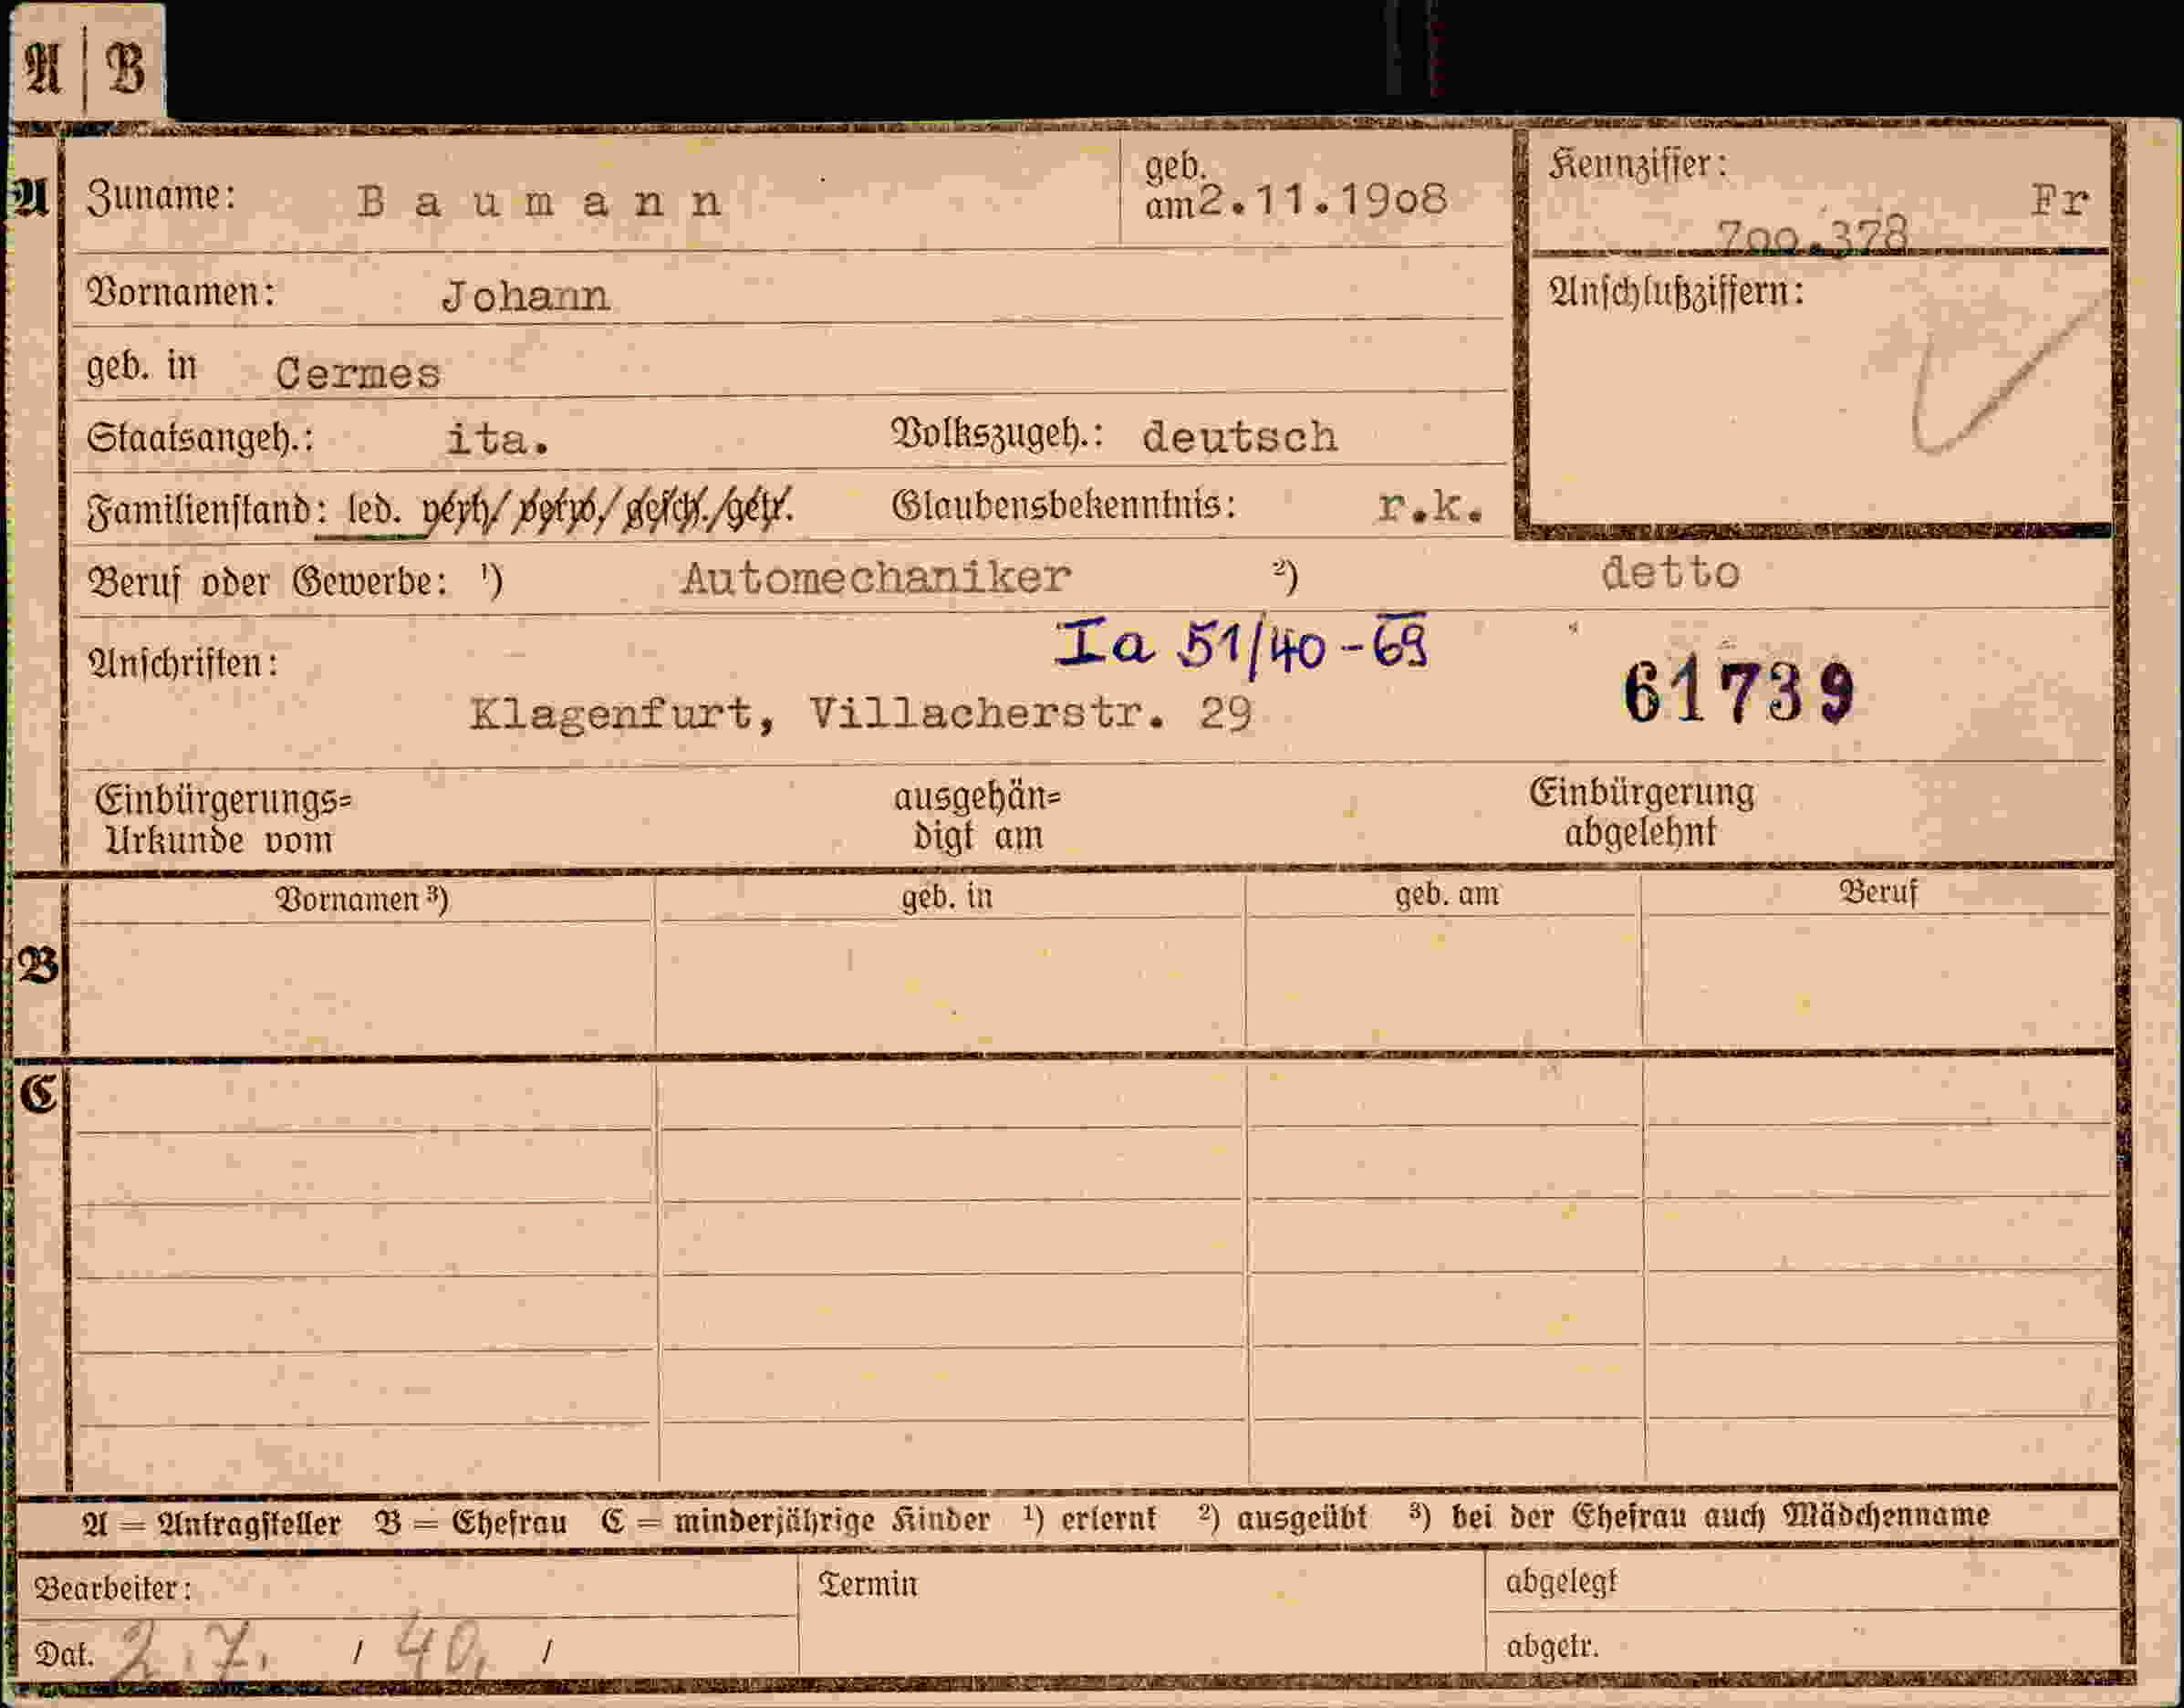 A | B
A Zuname: Baumann geb. am 2.11.1908 Kennziffer: 700.378 Fr
Vornamen: Johann Anschlußziffern:
geb. in Cermes
Staatsangeh.: ita. Volkszugeh.: deutsch
Familienstand: led. verh/ verw./ gesch./getr. Glaubensbekenntnis: r.k.
Beruf oder Gewerbe: ¹) Automechaniker ²) detto
Ia 51/40-69
Anschriften: 61739
Klagenfurt, Villacherstr. 29
Einbürgerungs= ausgehän= Einbürgerung
Urkunde vom digt am abgelehnt
Vornamen ³) geb. in geb. am Beruf
B
C
A = Antragsteller B = Ehefrau C = minderjährige Kinder ¹) erlernt ²) ausgeübt ³) bei der Ehefrau auch Mädchenname
Bearbeiter: Termin abgelegt
Dat. 2.7. / 40. / abgetr.